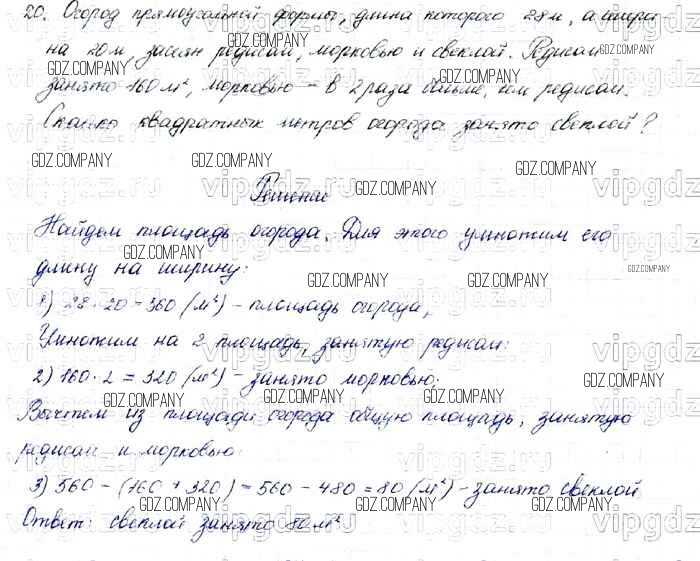 20. Огород прямоугольной формы, длина которого 28 м, а шири-
на 20 м, засеян редисом, морковью и свеклой. Редисом
занято 160 м², морковью - в 2 раза больше, чем редисом.
Сколько квадратных метров огорода занято свеклой?
Решение
Найдем площадь огорода. Для этого умножим его
длину на ширину:
1) 28 · 20 = 560 (м²) - площадь огорода,
Умножим на 2 площадь, занятую редисом:
2) 160 · 2 = 320 (м²) - занято морковью;
Вычтем из площади огорода общую площадь, занятую
редисом и морковью:
3) 560 - (160 + 320) = 560 - 480 = 80 (м²) - занято свеклой
Ответ: свеклой занято 80 м²